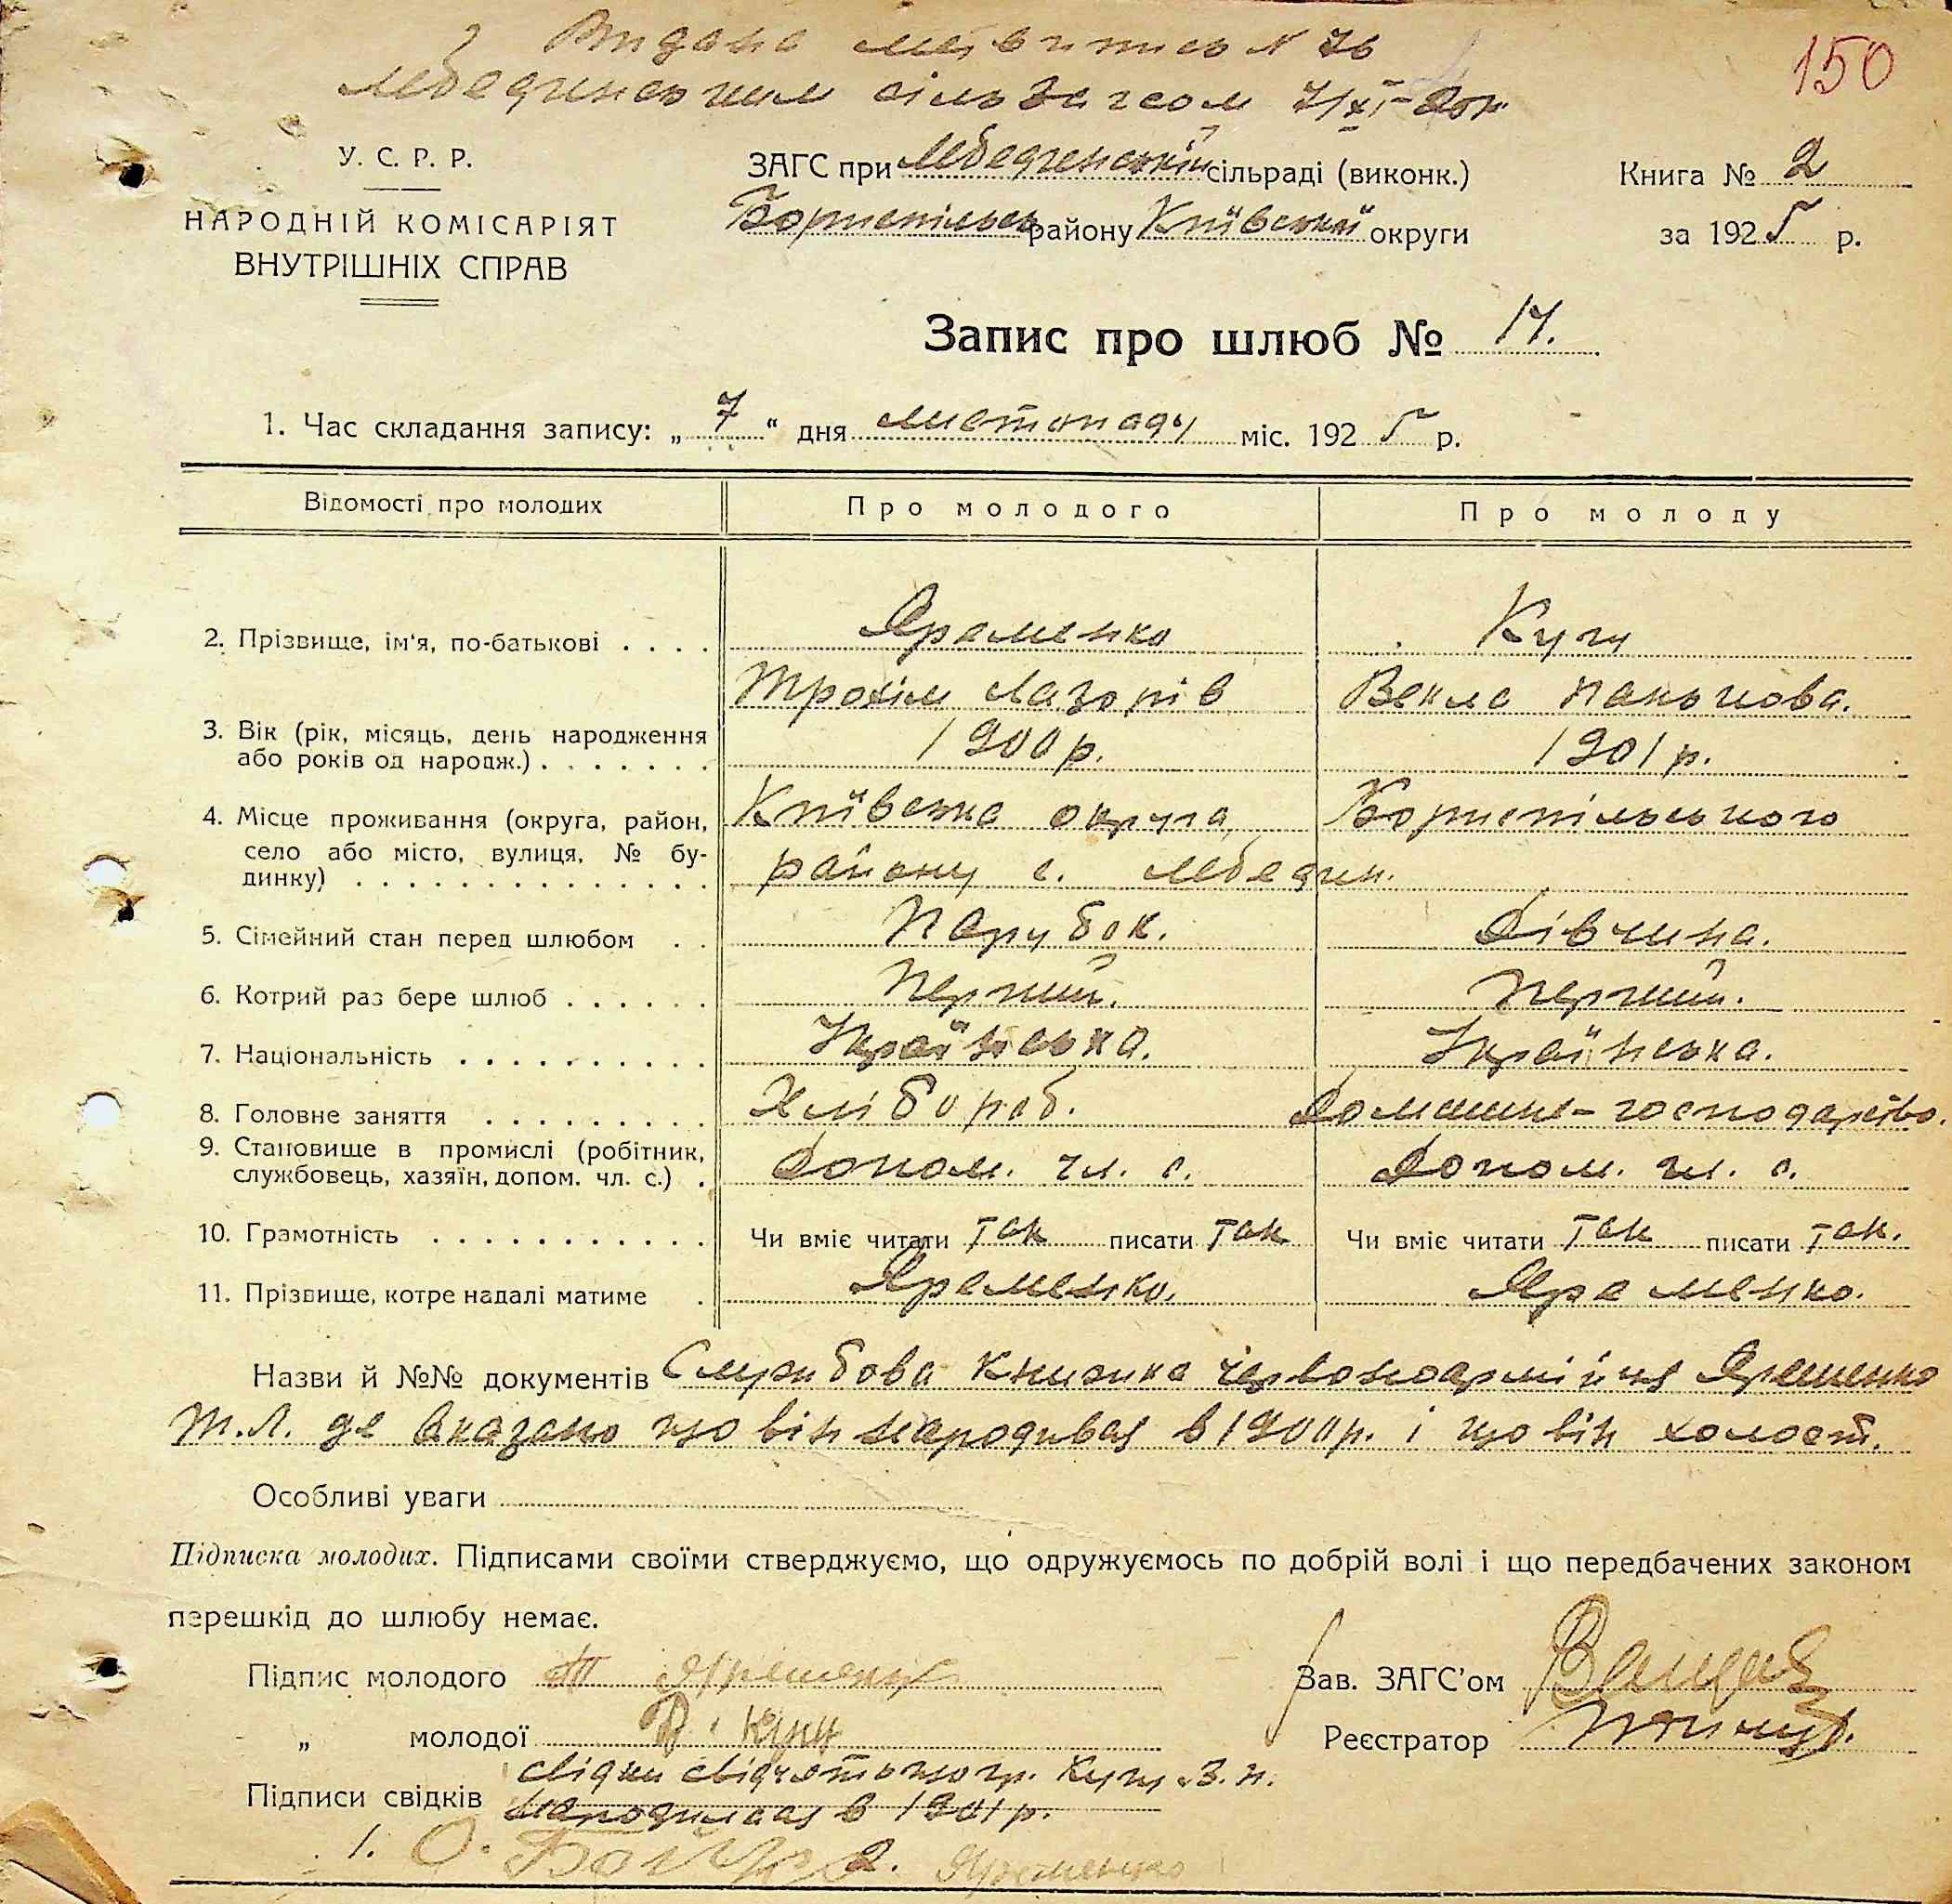 Видана метвитись № 76
Лебединським сільзагсом 7/XI-25 р.
150
У. С. Р. Р.
НАРОДНІЙ КОМІСАРІЯТ
ВНУТРІШНІХ СПРАВ
ЗАГС при Лебединській сільраді (виконк.)
Бориспільськ району Київської округи
Книга № 2
за 1925 р.
Запис про шлюб № 17.
1. Час складання запису: „ 7 “ дня листопаду міс. 1925 р.
Відомості про молодих
Про молодого
Про молоду
2. Прізвище, ім'я, по-батькові . . . .
Яременко
Трохім Лазорів
Кущ
Векла Панькова.
3. Вік (рік, місяць, день народження
або років од народж.) . . . . . . .
1900 р.
1901 р.
4. Місце проживання (округа, район,
село або місто, вулиця, № бу-
динку) . . . . . . . . . . . . . .
Київська округа, Бориспільського
району с. Лебедин.
5. Сімейний стан перед шлюбом . .
Парубок.
Дівчина.
6. Котрий раз бере шлюб . . . . . .
Перший.
Перший.
7. Національність . . . . . . . . . .
Українська.
Українська.
8. Головне заняття . . . . . . . . .
Хлібороб.
Домашнє-господарство.
9. Становище в промислі (робітник,
службовець, хазяїн, допом. чл. с.) .
Допом. чл. с.
Допом. чл. с.
10. Грамотність . . . . . . . . . . .
Чи вміє читати так писати так
Чи вміє читати так писати так.
11. Прізвище, котре надалі матиме .
Яременко.
Яременко.
Назви й №№ документів Службова книжка червоноармійця Яременко
Т.Л. де вказано що він народивая в 1900 р. і що він холост.
Особливі уваги
Підписка молодих. Підписами своїми стверджуємо, що одружуємось по добрій волі і що передбачених законом
перешкід до шлюбу немає.
Підпис молодого Т Яременко
„ молодої В. Кущ
Зав. ЗАГС'ом
Реєстратор
Підписи свідків свідки свідчать що гр. Кущ В. П.
народилася в 1901 р.
1. О. 2. Яременко